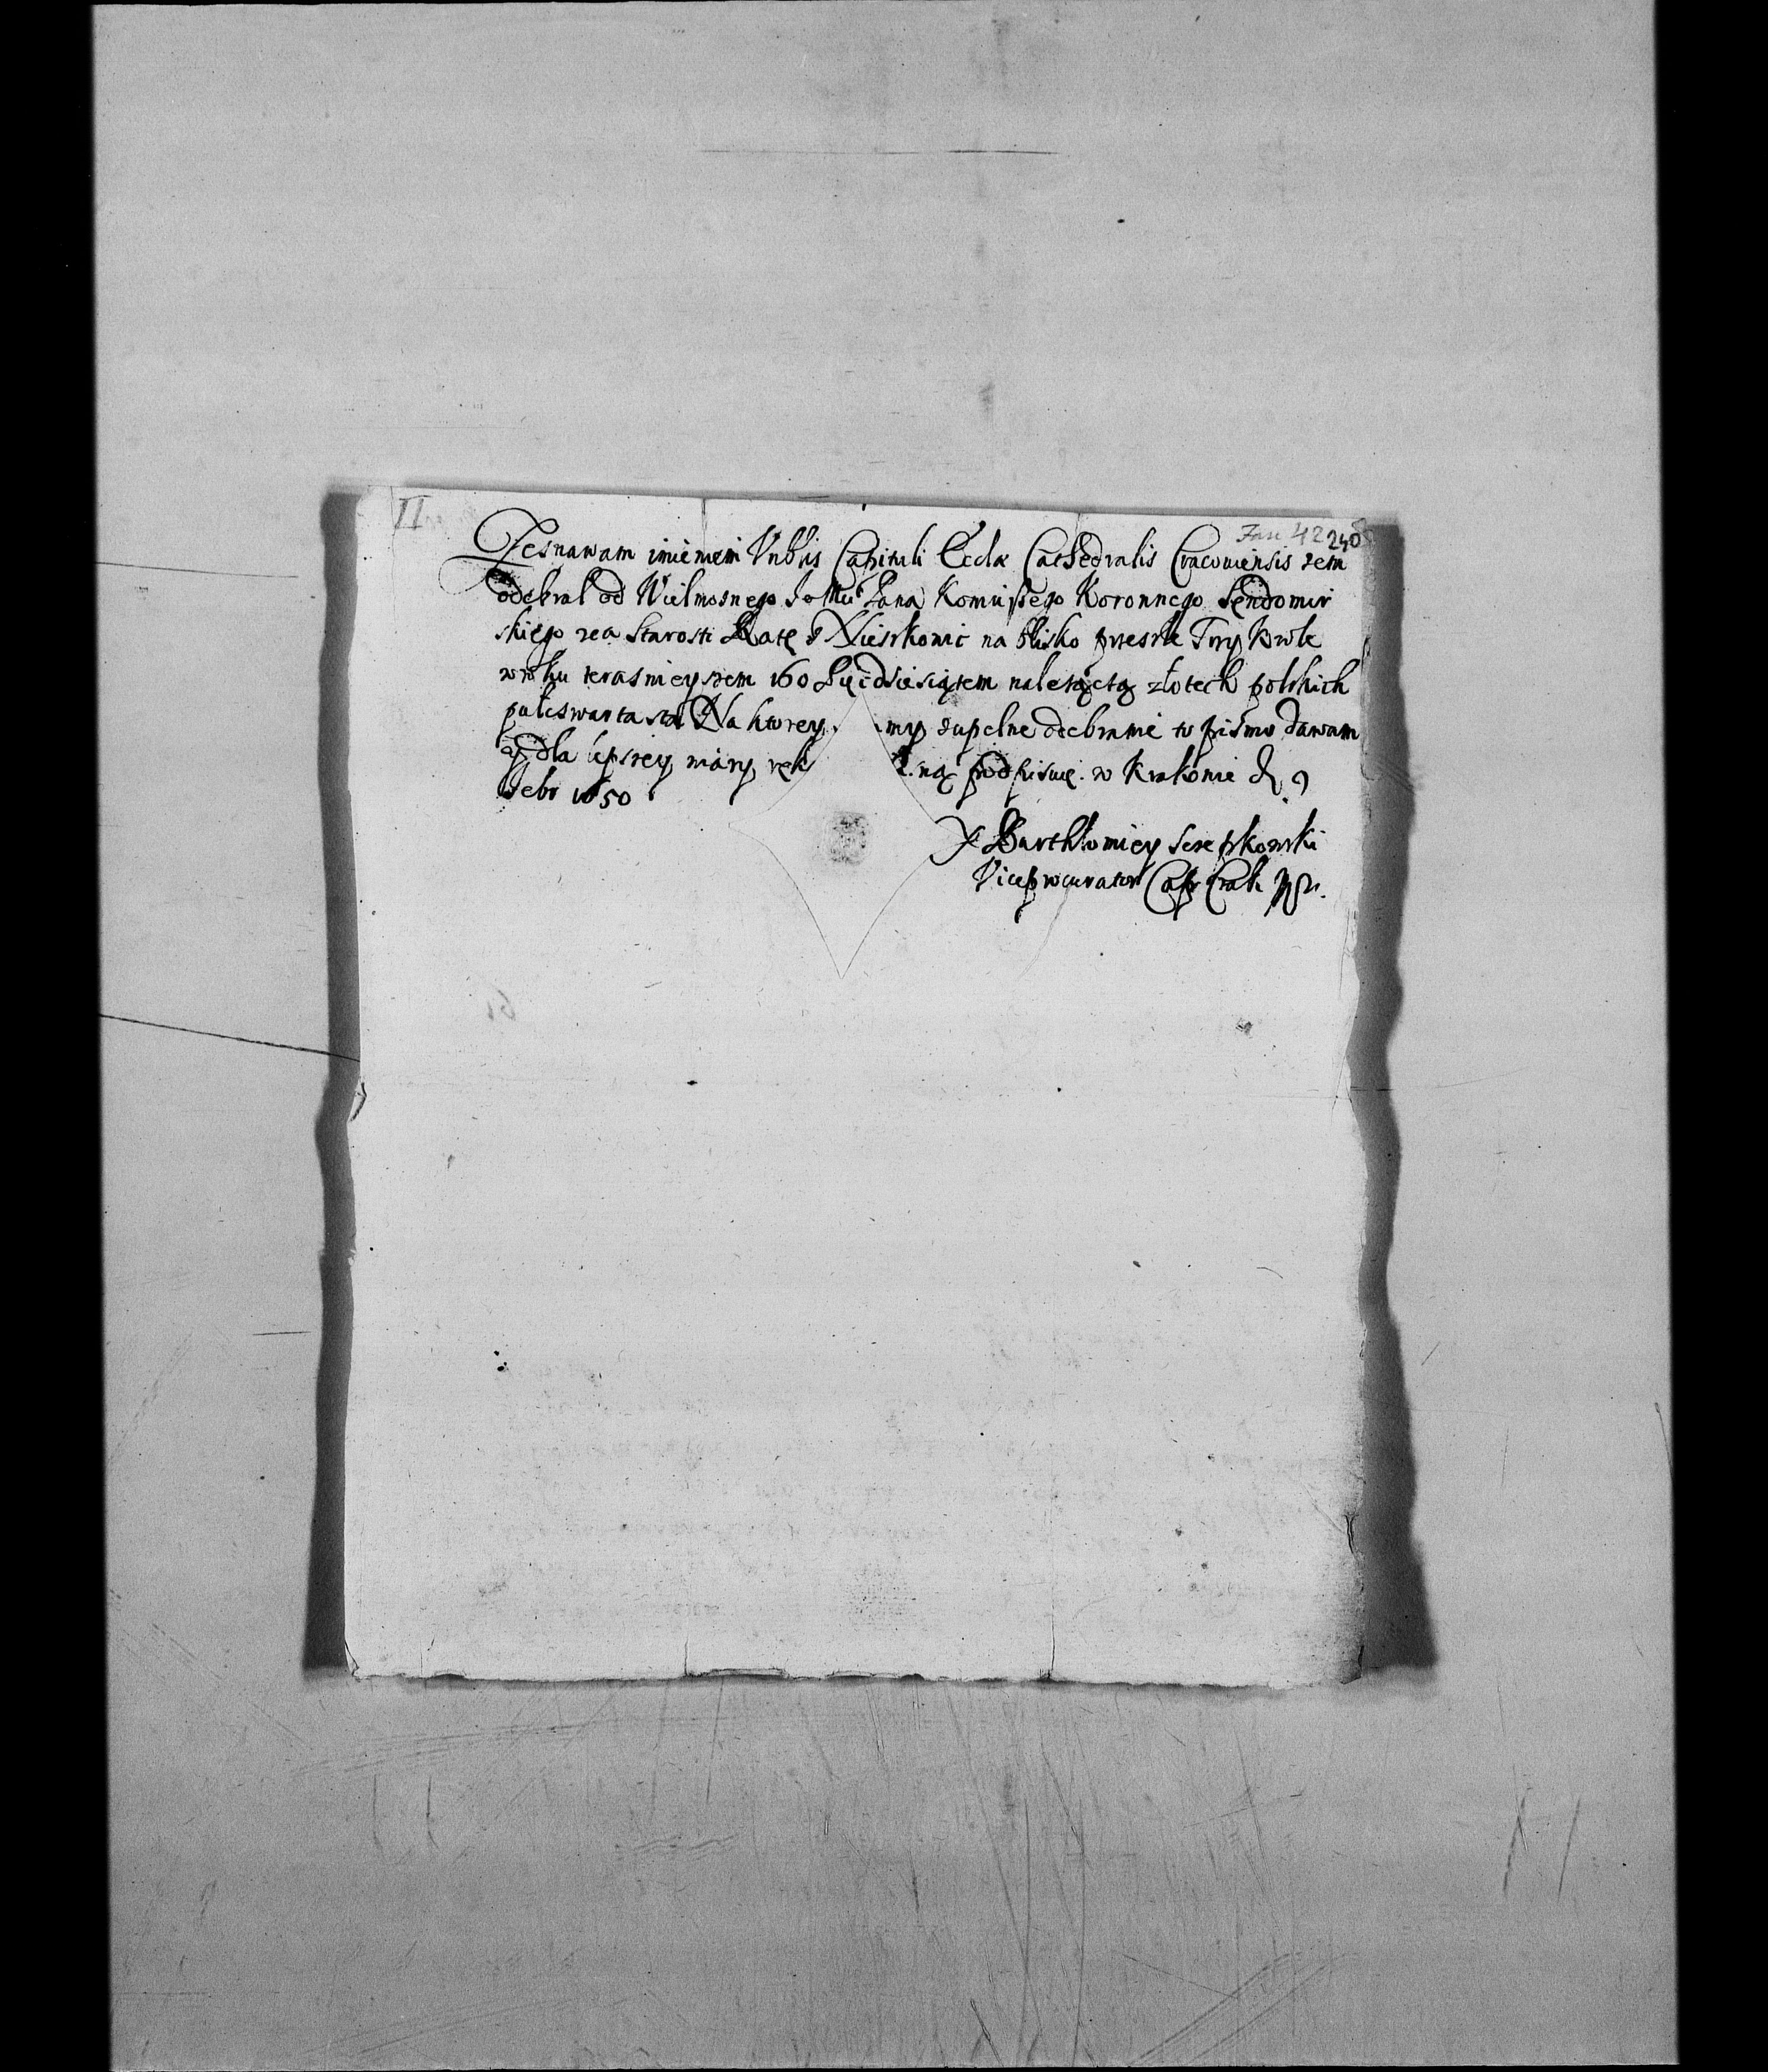 II
Jan 42 240
Zesnawam imieniem Vnblis Capituli Eccla Cathedralis Cracouiensis zem
odebral od Wielmosnego Jo Mci Pana Koniussego Koronnego Sendomir
skiego zea Starosti Ratę s Xiesrkowic na blisko przeszłe Trzy Krole
w roku terasnieyszem 160 Pięcdziesiątem nalezącą złotech polskich
pulcswarta sta Na ktorey my zupełne odebranie to pismo dawam
y dla lepszey wiary ręk ną podpisuię. w Krakowie d. 9
Febr 1650
X Barthlomiey
Viceprocurator Cap Crak mp.